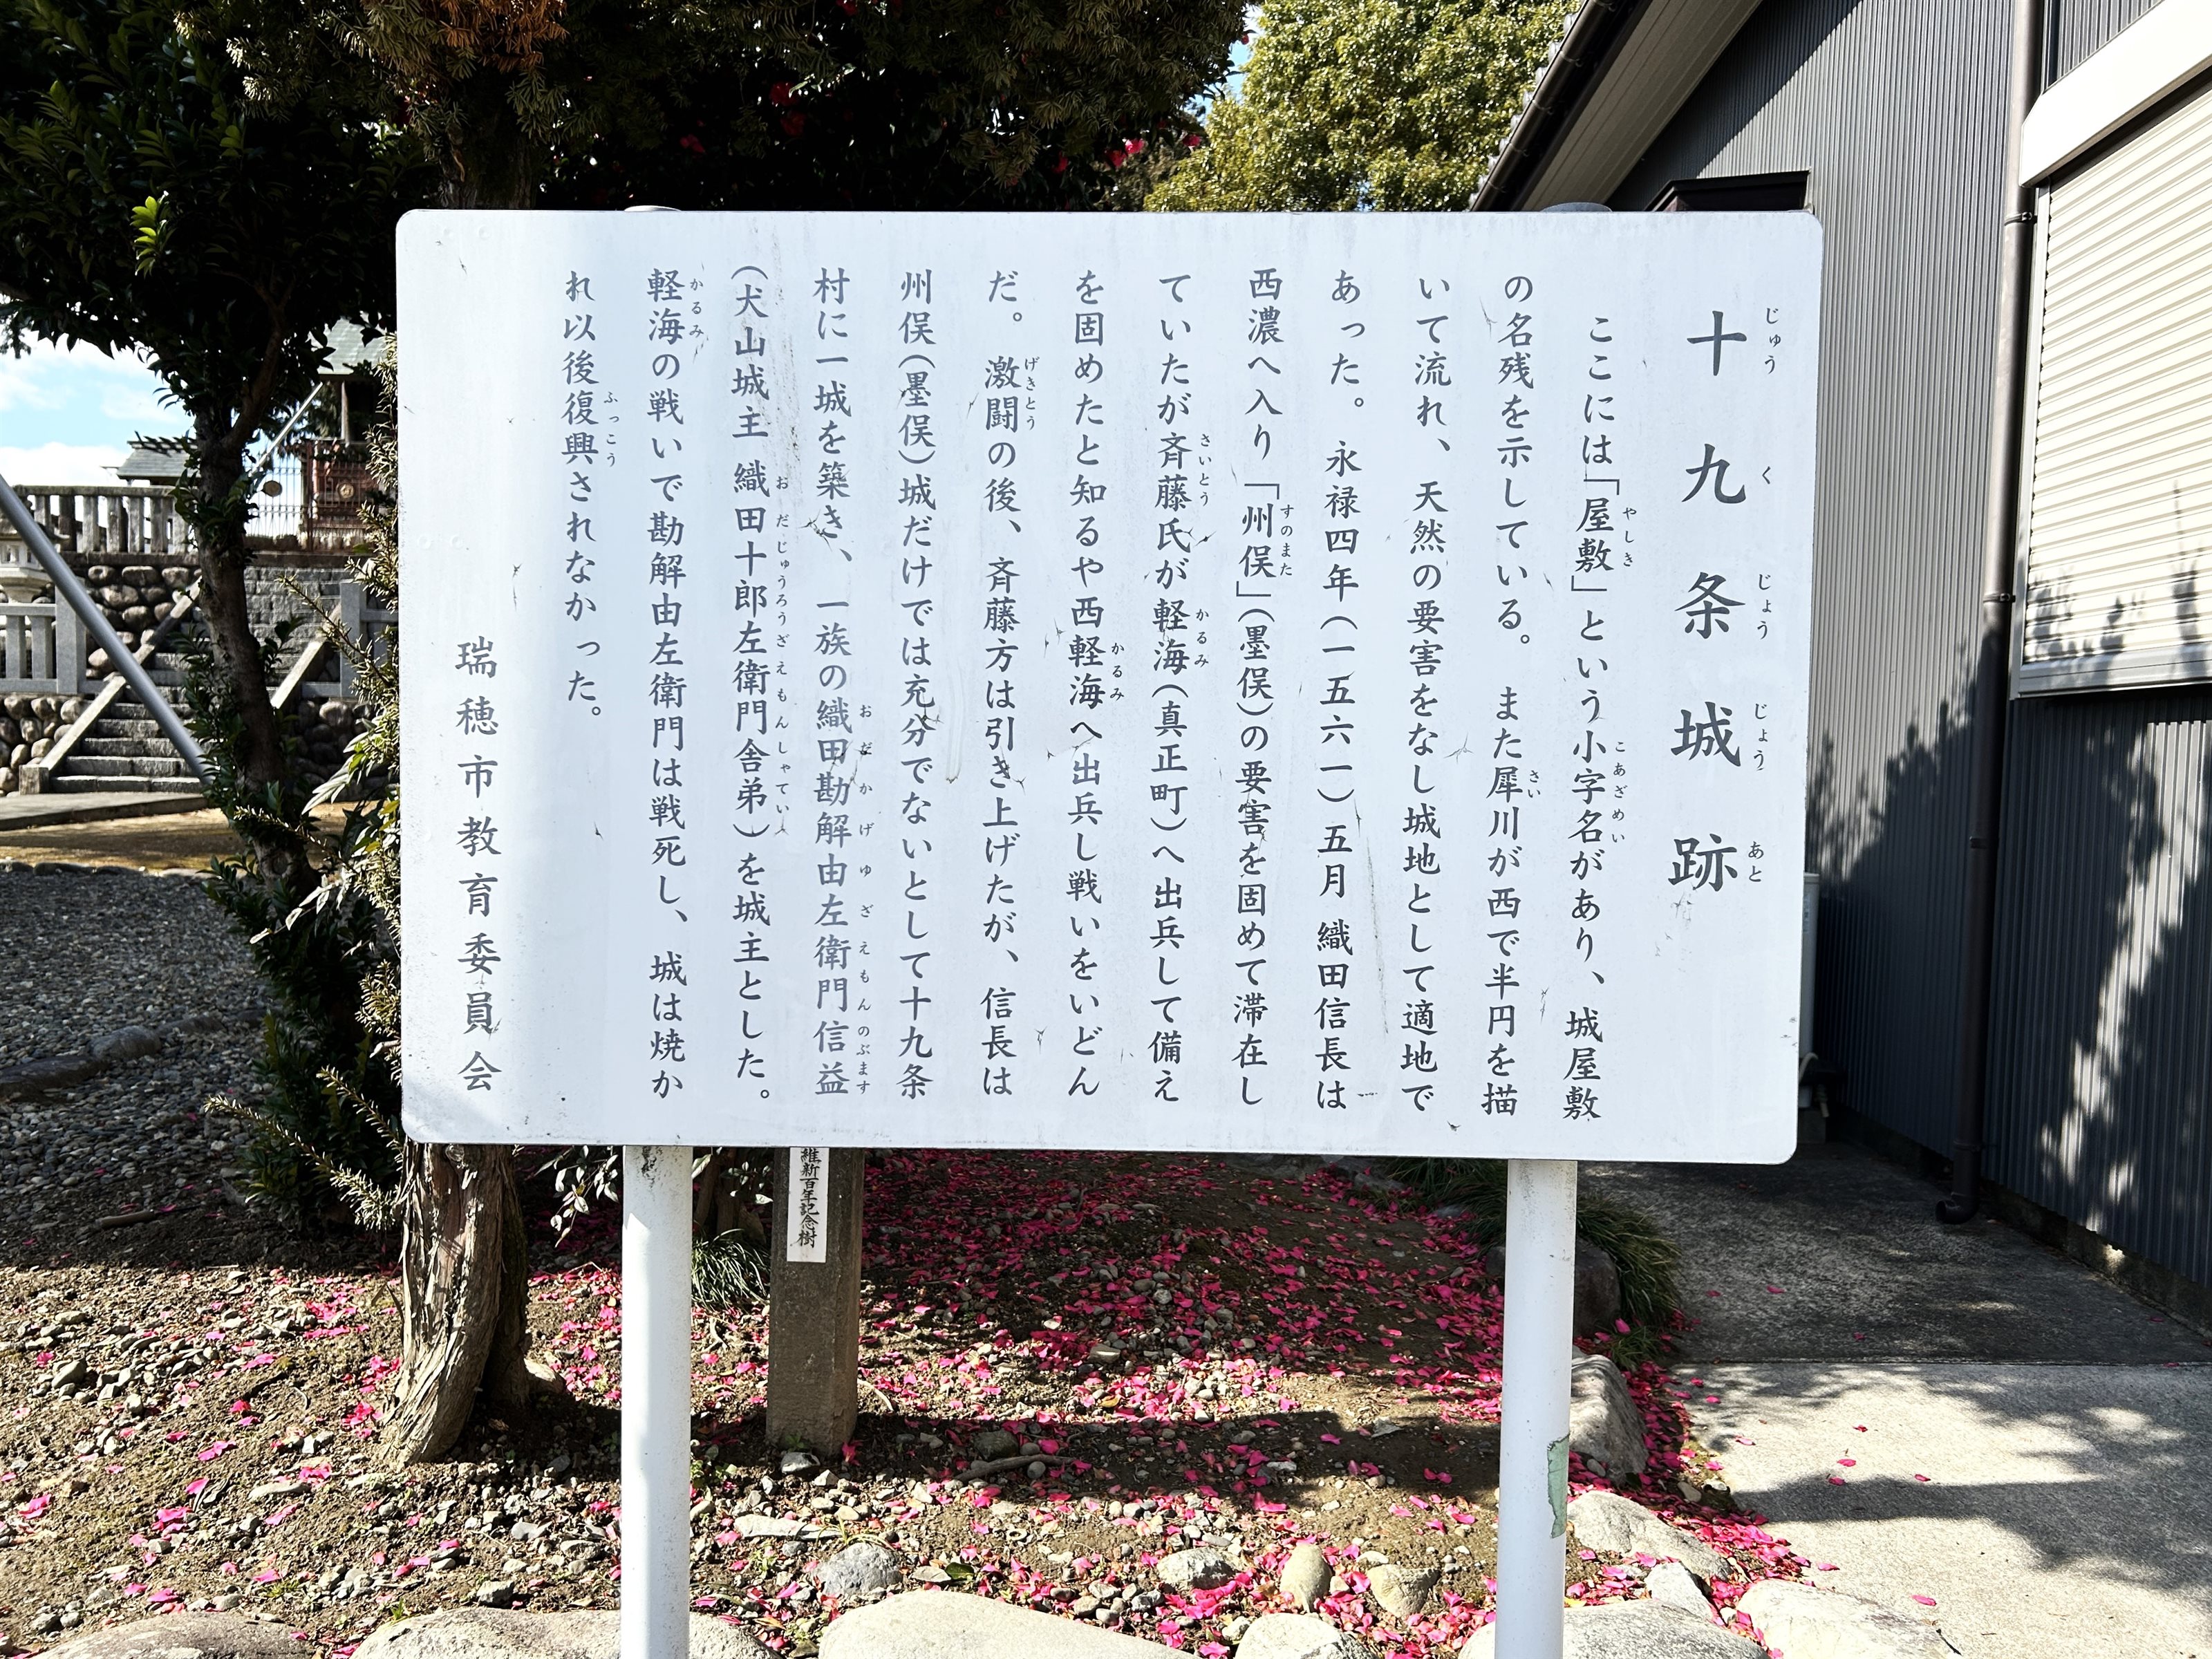 十九条城跡
ここには「屋敷」という小字名があり、城屋敷
の名残を示している。また犀川が西で半円を描
いて流れ、天然の要害をなし城地として適地で
あった。永禄四年(一五六一)五月 織田信長は
西濃へ入り「州俣」(墨俣)の要害を固めて滞在し
ていたが斉藤氏が軽海(真正町)へ出兵して備え
を固めたと知るや西軽海へ出兵し戦いをいどん
だ。激闘の後、斉藤方は引き上げたが、信長は
州俣(墨俣)城だけでは充分でないとして十九条
村に一城を築き、一族の織田勘解由左衛門信益
(犬山城主 織田十郎左衛門舎弟)を城主とした。
軽海の戦いで勘解由左衛門は戦死し、城は焼か
れ以後復興されなかった。
瑞穂市教育委員会
維新百年記念樹